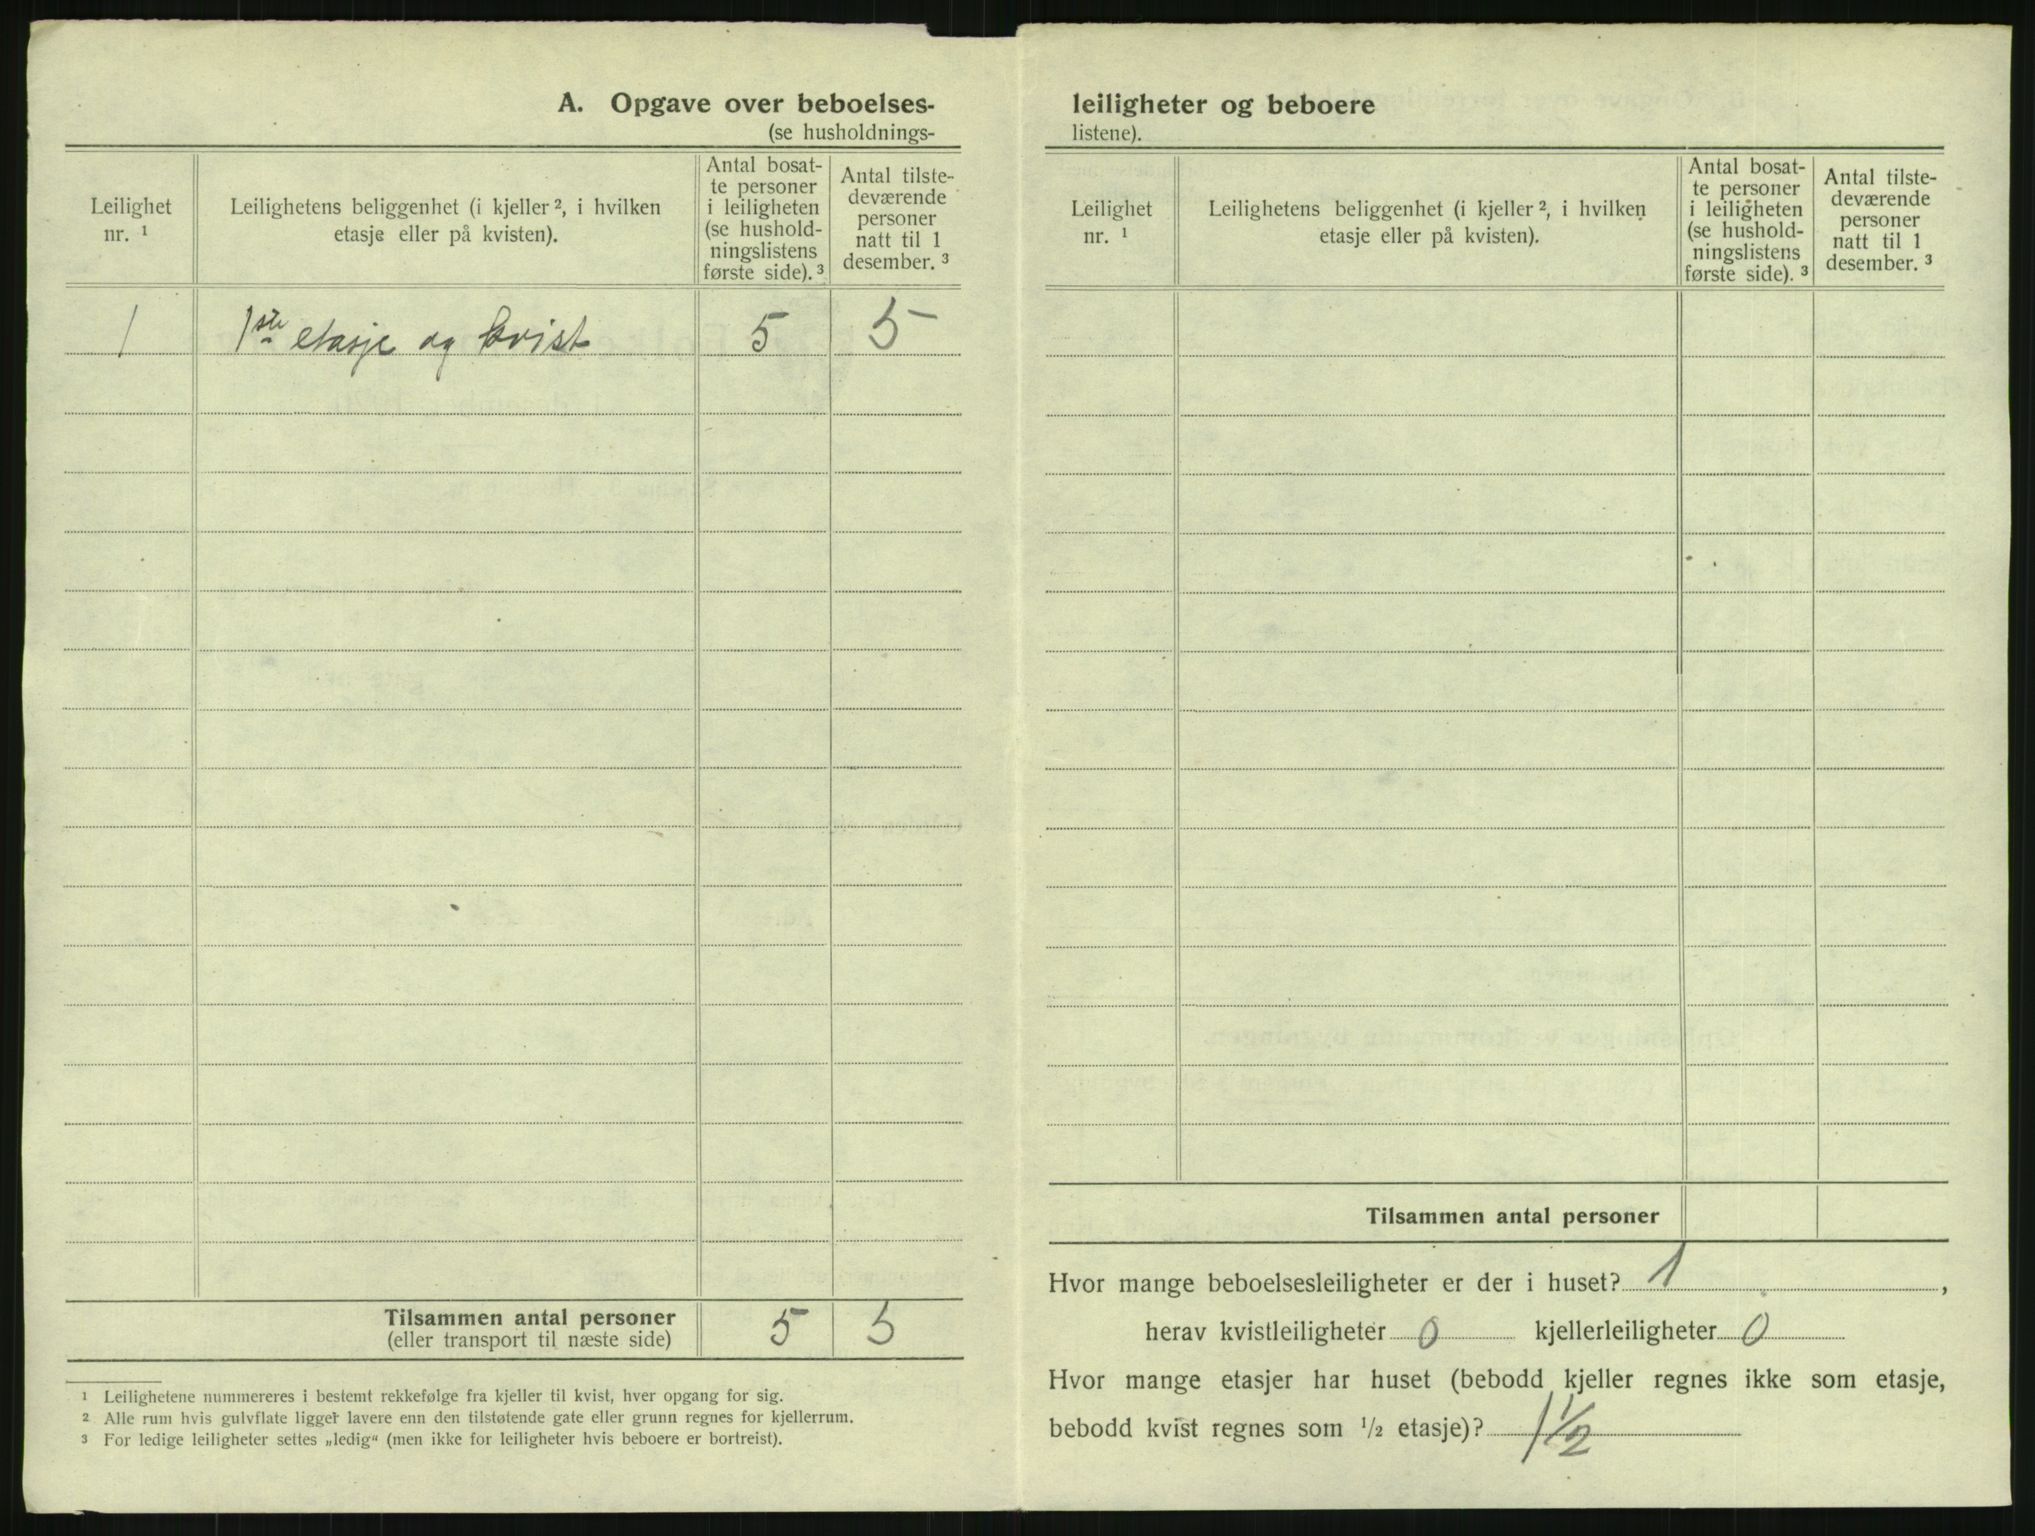 A. Opgave over beboelses-
(se husholdnings-
Leilighet
nr. ¹
Leilighetens beliggenhet (i kjeller ², i hvilken
etasje eller på kvisten).
Antal bosat-
te personer
i leiligheten
(se hushold-
ningslistens
første side). ³
Antal tilste-
deværende
personer
natt til 1
desember. ³
1 1ste etasje og kvist 5 5
Tilsammen antal personer 5 5
(eller transport til næste side)
¹ Leilighetene nummereres i bestemt rekkefølge fra kjeller til kvist, hver opgang for sig.
² Alle rum hvis gulvflate ligger lavere enn den tilstøtende gate eller grunn regnes for kjellerrum.
³ For ledige leiligheter settes „ledig“ (men ikke for leiligheter hvis beboere er bortreist).
leiligheter og beboere
listene).
Leilighet
nr. ¹
Leilighetens beliggenhet (i kjeller ², i hvilken
etasje eller på kvisten).
Antal bosat-
te personer
i leiligheten
(se hushold-
ningslistens
første side). ³
Antal tilste-
deværende
personer
natt til 1
desember. ³
Tilsammen antal personer
Hvor mange beboelsesleiligheter er der i huset? 1 ,
herav kvistleiligheter 0 kjellerleiligheter 0
Hvor mange etasjer har huset (bebodd kjeller regnes ikke som etasje,
bebodd kvist regnes som ½ etasje)? 1½